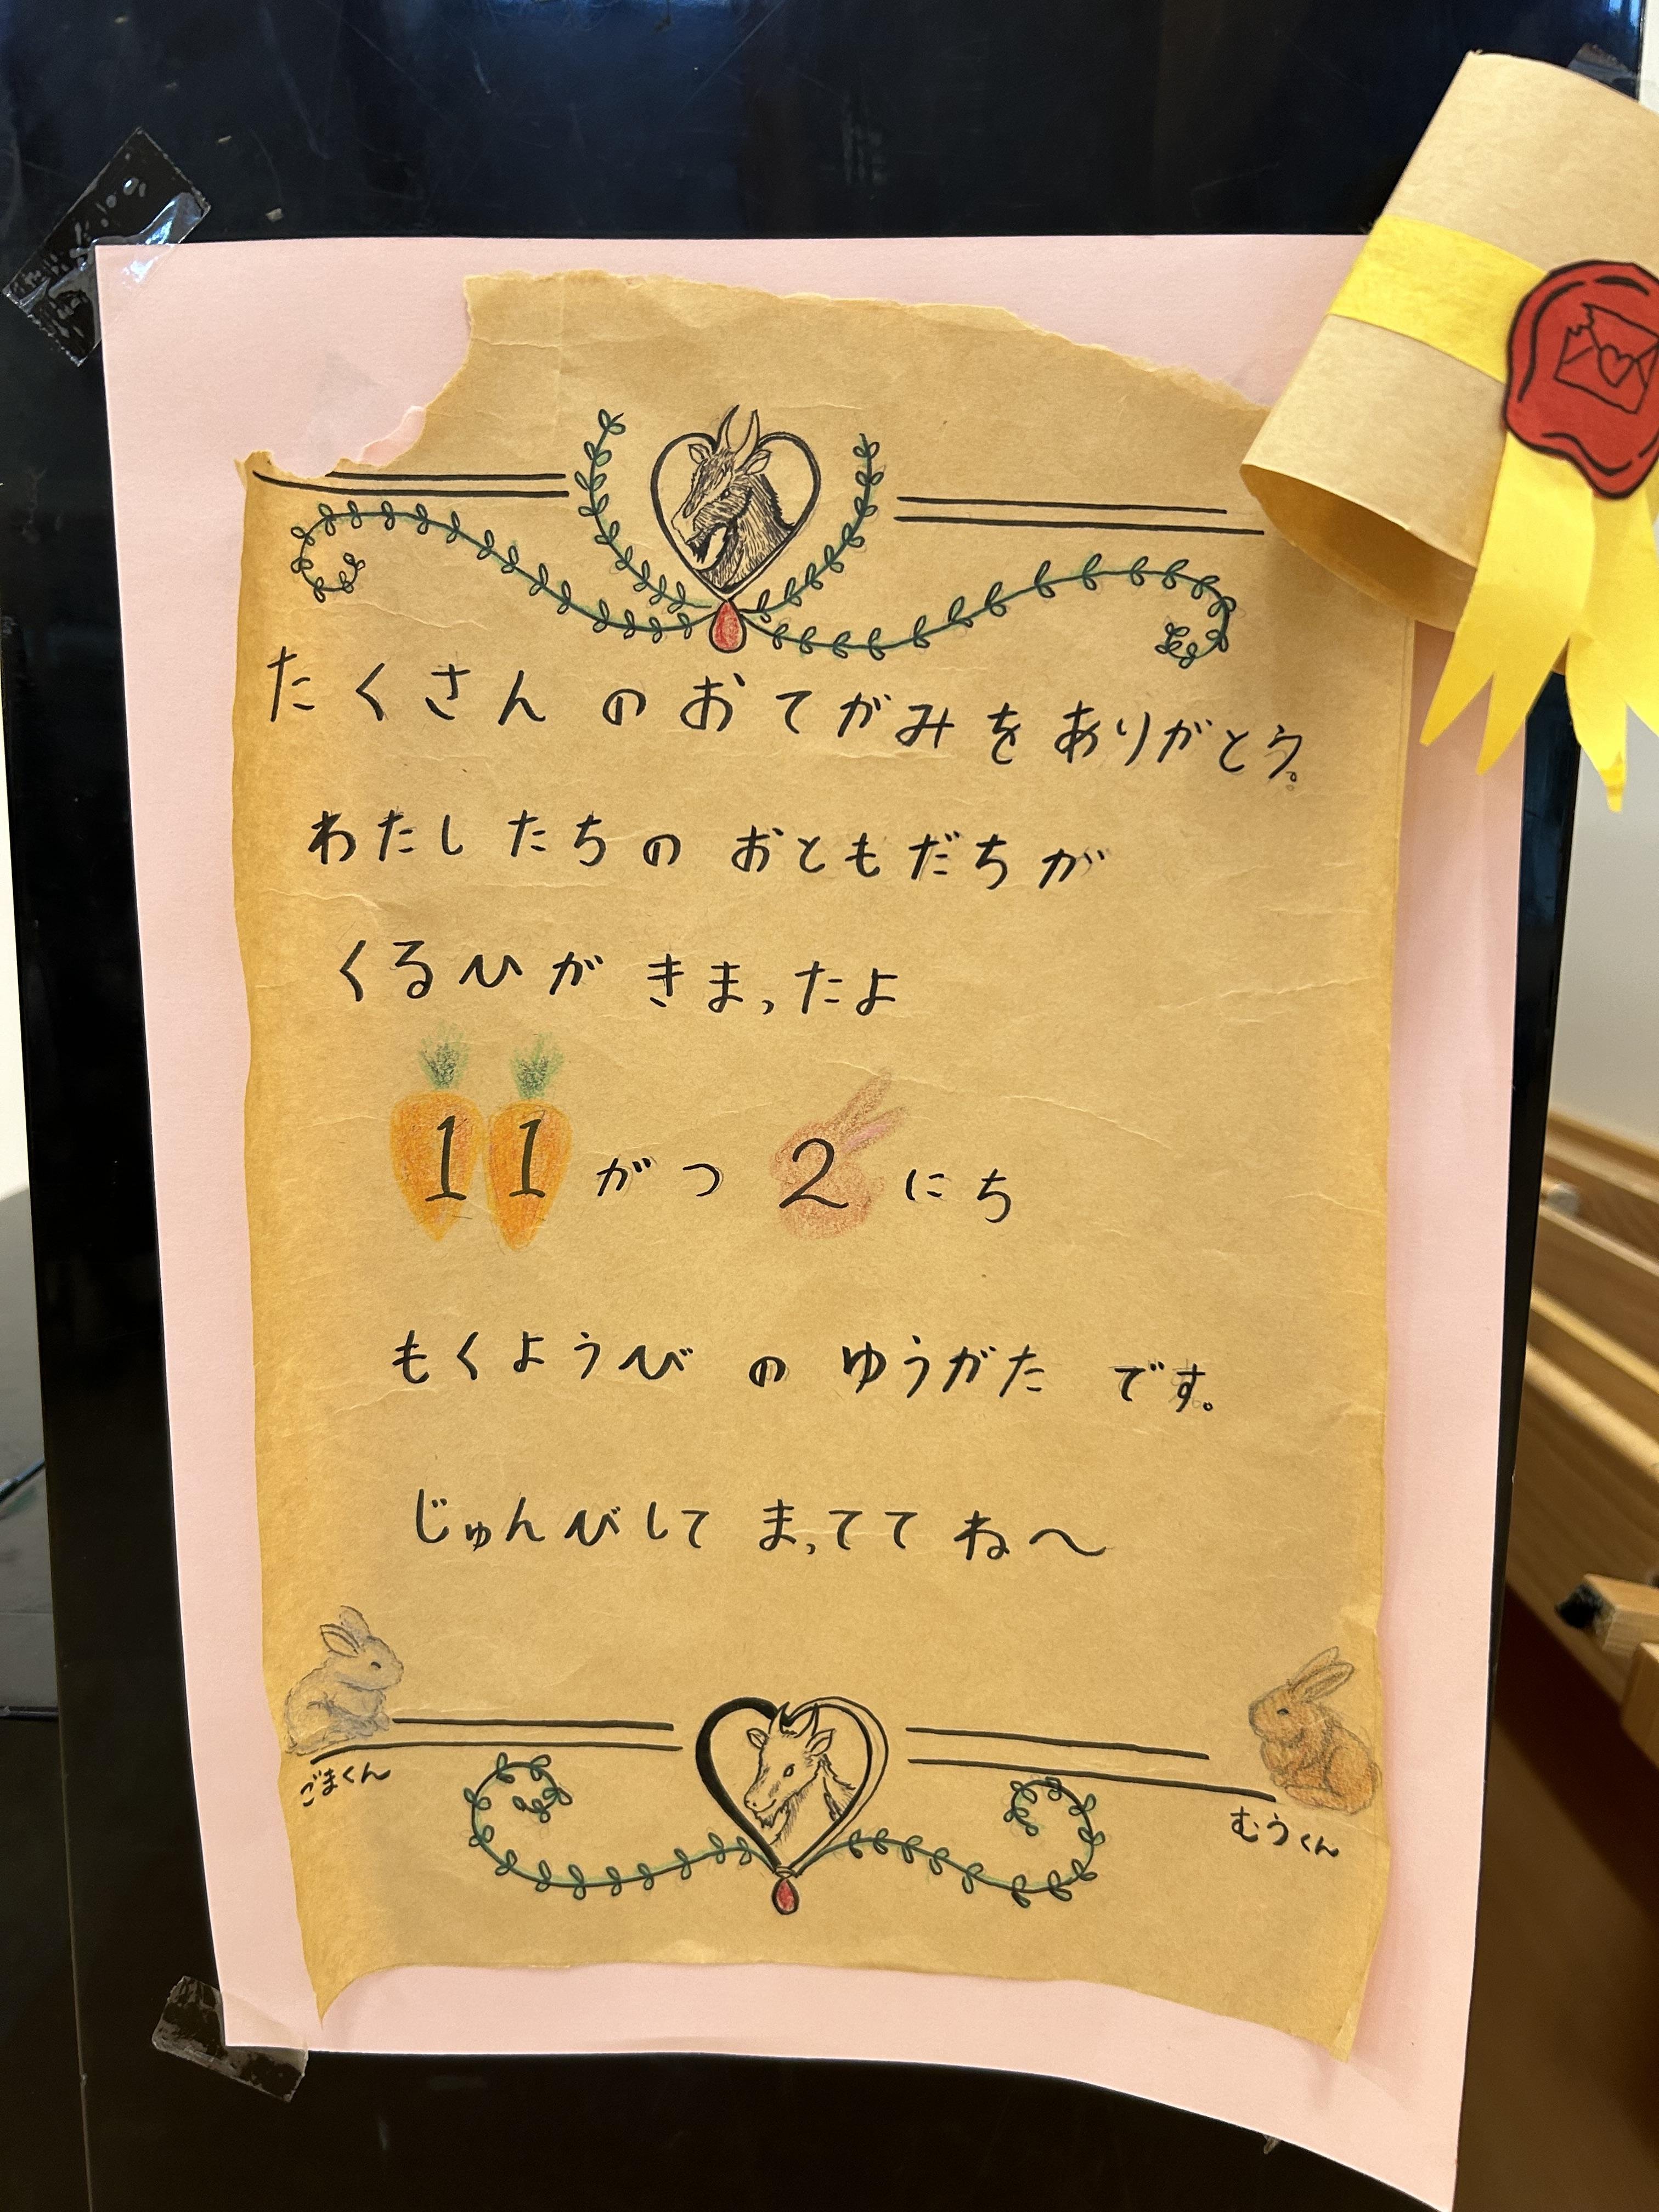 たくさんのおてがみをありがとう。
わたしたちのおともだちが
くるひがきまったよ
11がつ2にち
もくようびのゆうがたです。
じゅんびしてまっててね〜
ごまくん
むうくん